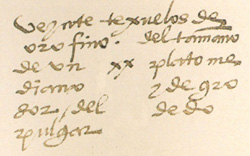 Veynte texuelos de
oro fino. del tamaño
de vn xx plato me
diano y de gro
dor, del de do
pulgar